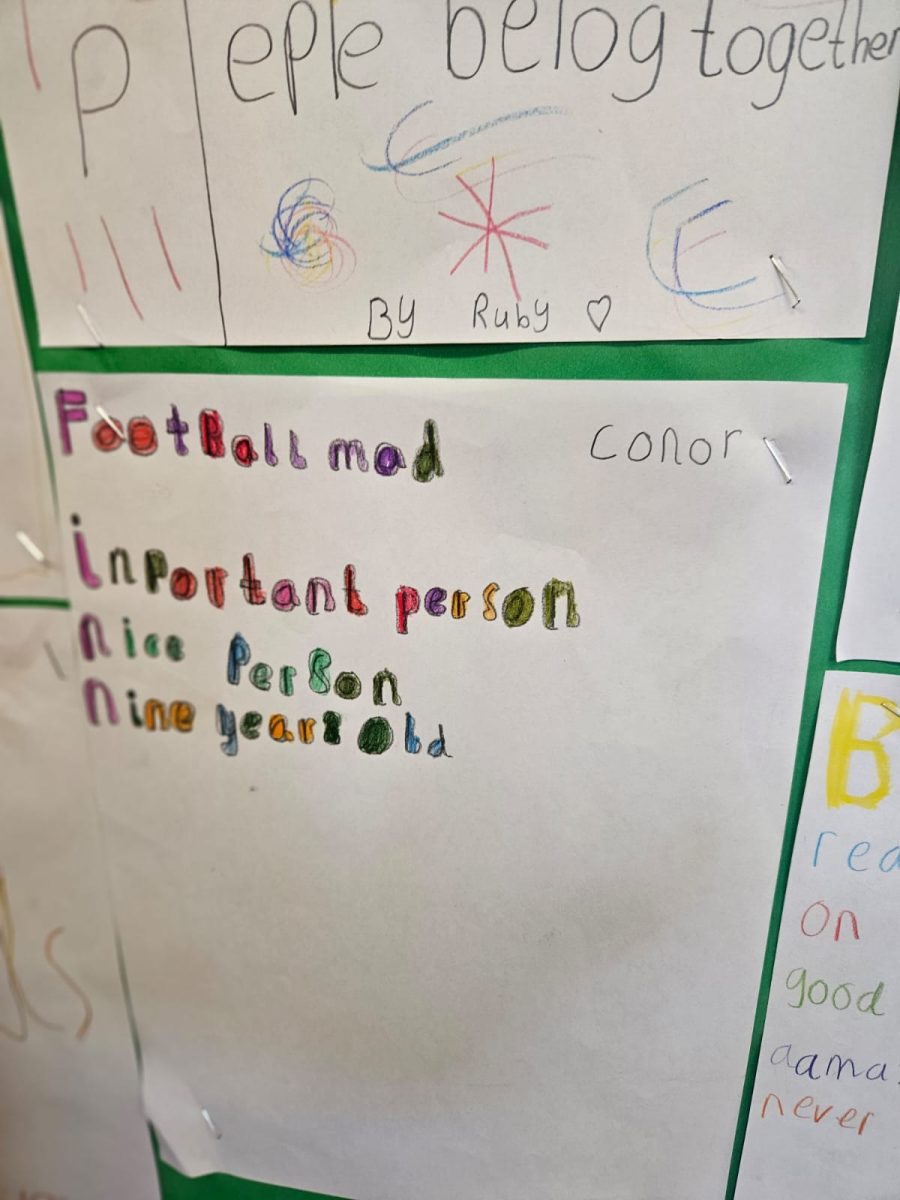 P eple belog together
BY Ruby ♡
FootBall mad
conor
inportant person
nice PerSon
nine years old
B
on
good
never